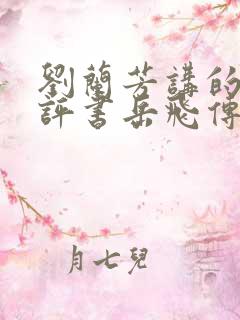 劉蘭芳講的
評書岳飛傳
月七兒